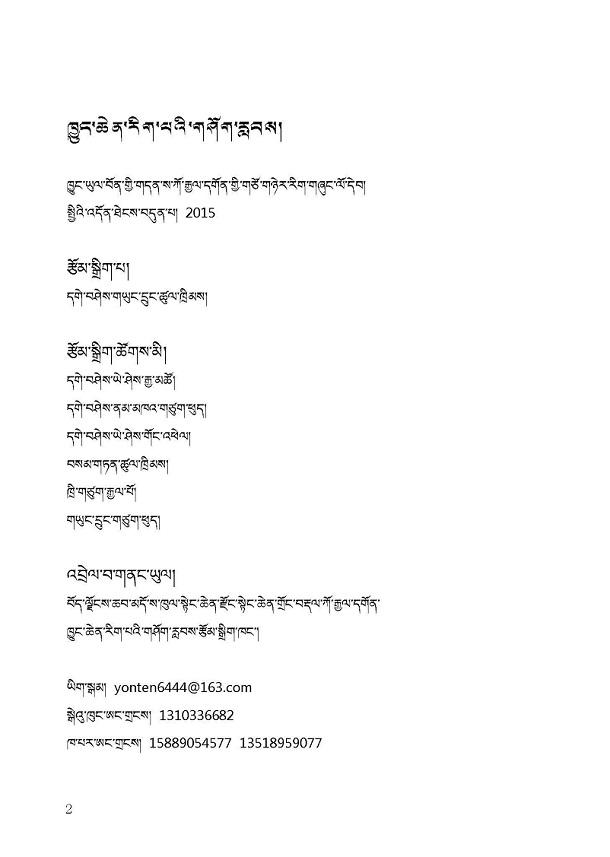 ཁྱུང་ཆེན་རིག་པའི་གཤོག་རླབས།
ཁྱུང་ཡུལ་བོན་གྱི་གདན་ས་ཀོ་རྒྱལ་དགོན་གྱི་གཙོ་གཉེར་རིག་གཞུང་ལོ་དེབ།
སྤྱིའི་འདོན་ཐེངས་བདུན་པ། 2015
རྩོམ་སྒྲིག་པ།
དགེ་བཤེས་གཡུང་དྲུང་ཚུལ་ཁྲིམས།
རྩོམ་སྒྲིག་ཚོགས་མི།
དགེ་བཤེས་ཡེ་ཤེས་རྒྱ་མཚོ།
དགེ་བཤེས་ནམ་མཁའ་གཙུག་ཕུད།
དགེ་བཤེས་ཡེ་ཤེས་གོང་འཕེལ།
བསམ་གཏན་ཚུལ་ཁྲིམས།
ཁྲི་གཙུག་རྒྱལ་པོ།
གཡུང་དྲུང་གཙུག་ཕུད།
འབྲེལ་བ་གནང་ཡུལ།
བོད་ལྗོངས་ཆབ་མདོ་ས་ཁུལ་སྟེང་ཆེན་རྫོང་སྟེང་ཆེན་གྲོང་བརྡལ་ཀོ་རྒྱལ་དགོན་
ཁྱུང་ཆེན་རིག་པའི་གཤོག་རླབས་རྩོམ་སྒྲིག་ཁང་།
ཡིག་སྒམ། yonten6444@163.com
སྒེའུ་ཁུང་ཨང་གྲངས། 1310336682
ཁ་པར་ཨང་གྲངས། 15889054577 13518959077
2